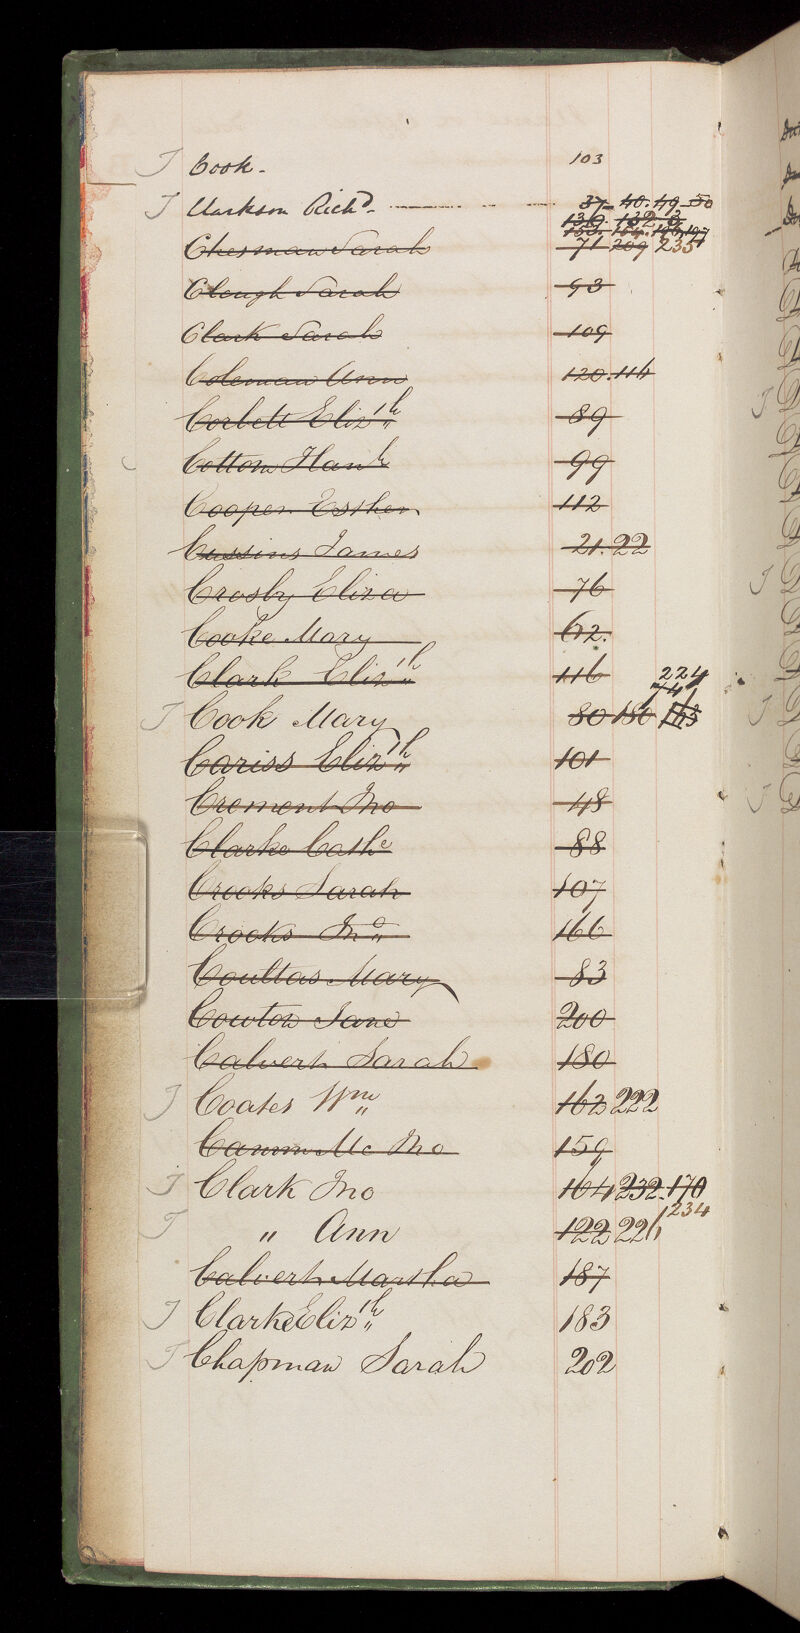 J Cook - 103
J Clarkson Richd - 37 - 40 . 49 - 50
139 . 182
153 . 154 . 186 . 197
Chesman Sarah 71 209 235
Clough Sarah 93
Clark Sarah 109
Coleman Ann 120 . 116
Corbett Elizth 89
Cotton Hanh 99
Cooper Esther 112
Cussins James 21 . 22
Crosby Eliza 76
Cooke Mary 62 .
Clark Elizth 116
224
J Cook Mary 80 180
Cariss Elizth 101
Crement Jno 48
Clarke Cathe 88
Crooks Sarah 107
Crooks Jno 166
Coultas Mary 83
Cowton Jane 200
Calvert Sarah 180
J Coates Wm 162 222
Mc Jno 159
J Clark Jno 164 232 . 170
J " Ann 122 226 234
Calvert Martha 187
J Clarke Elizth 183
J Chapman Sarah 202